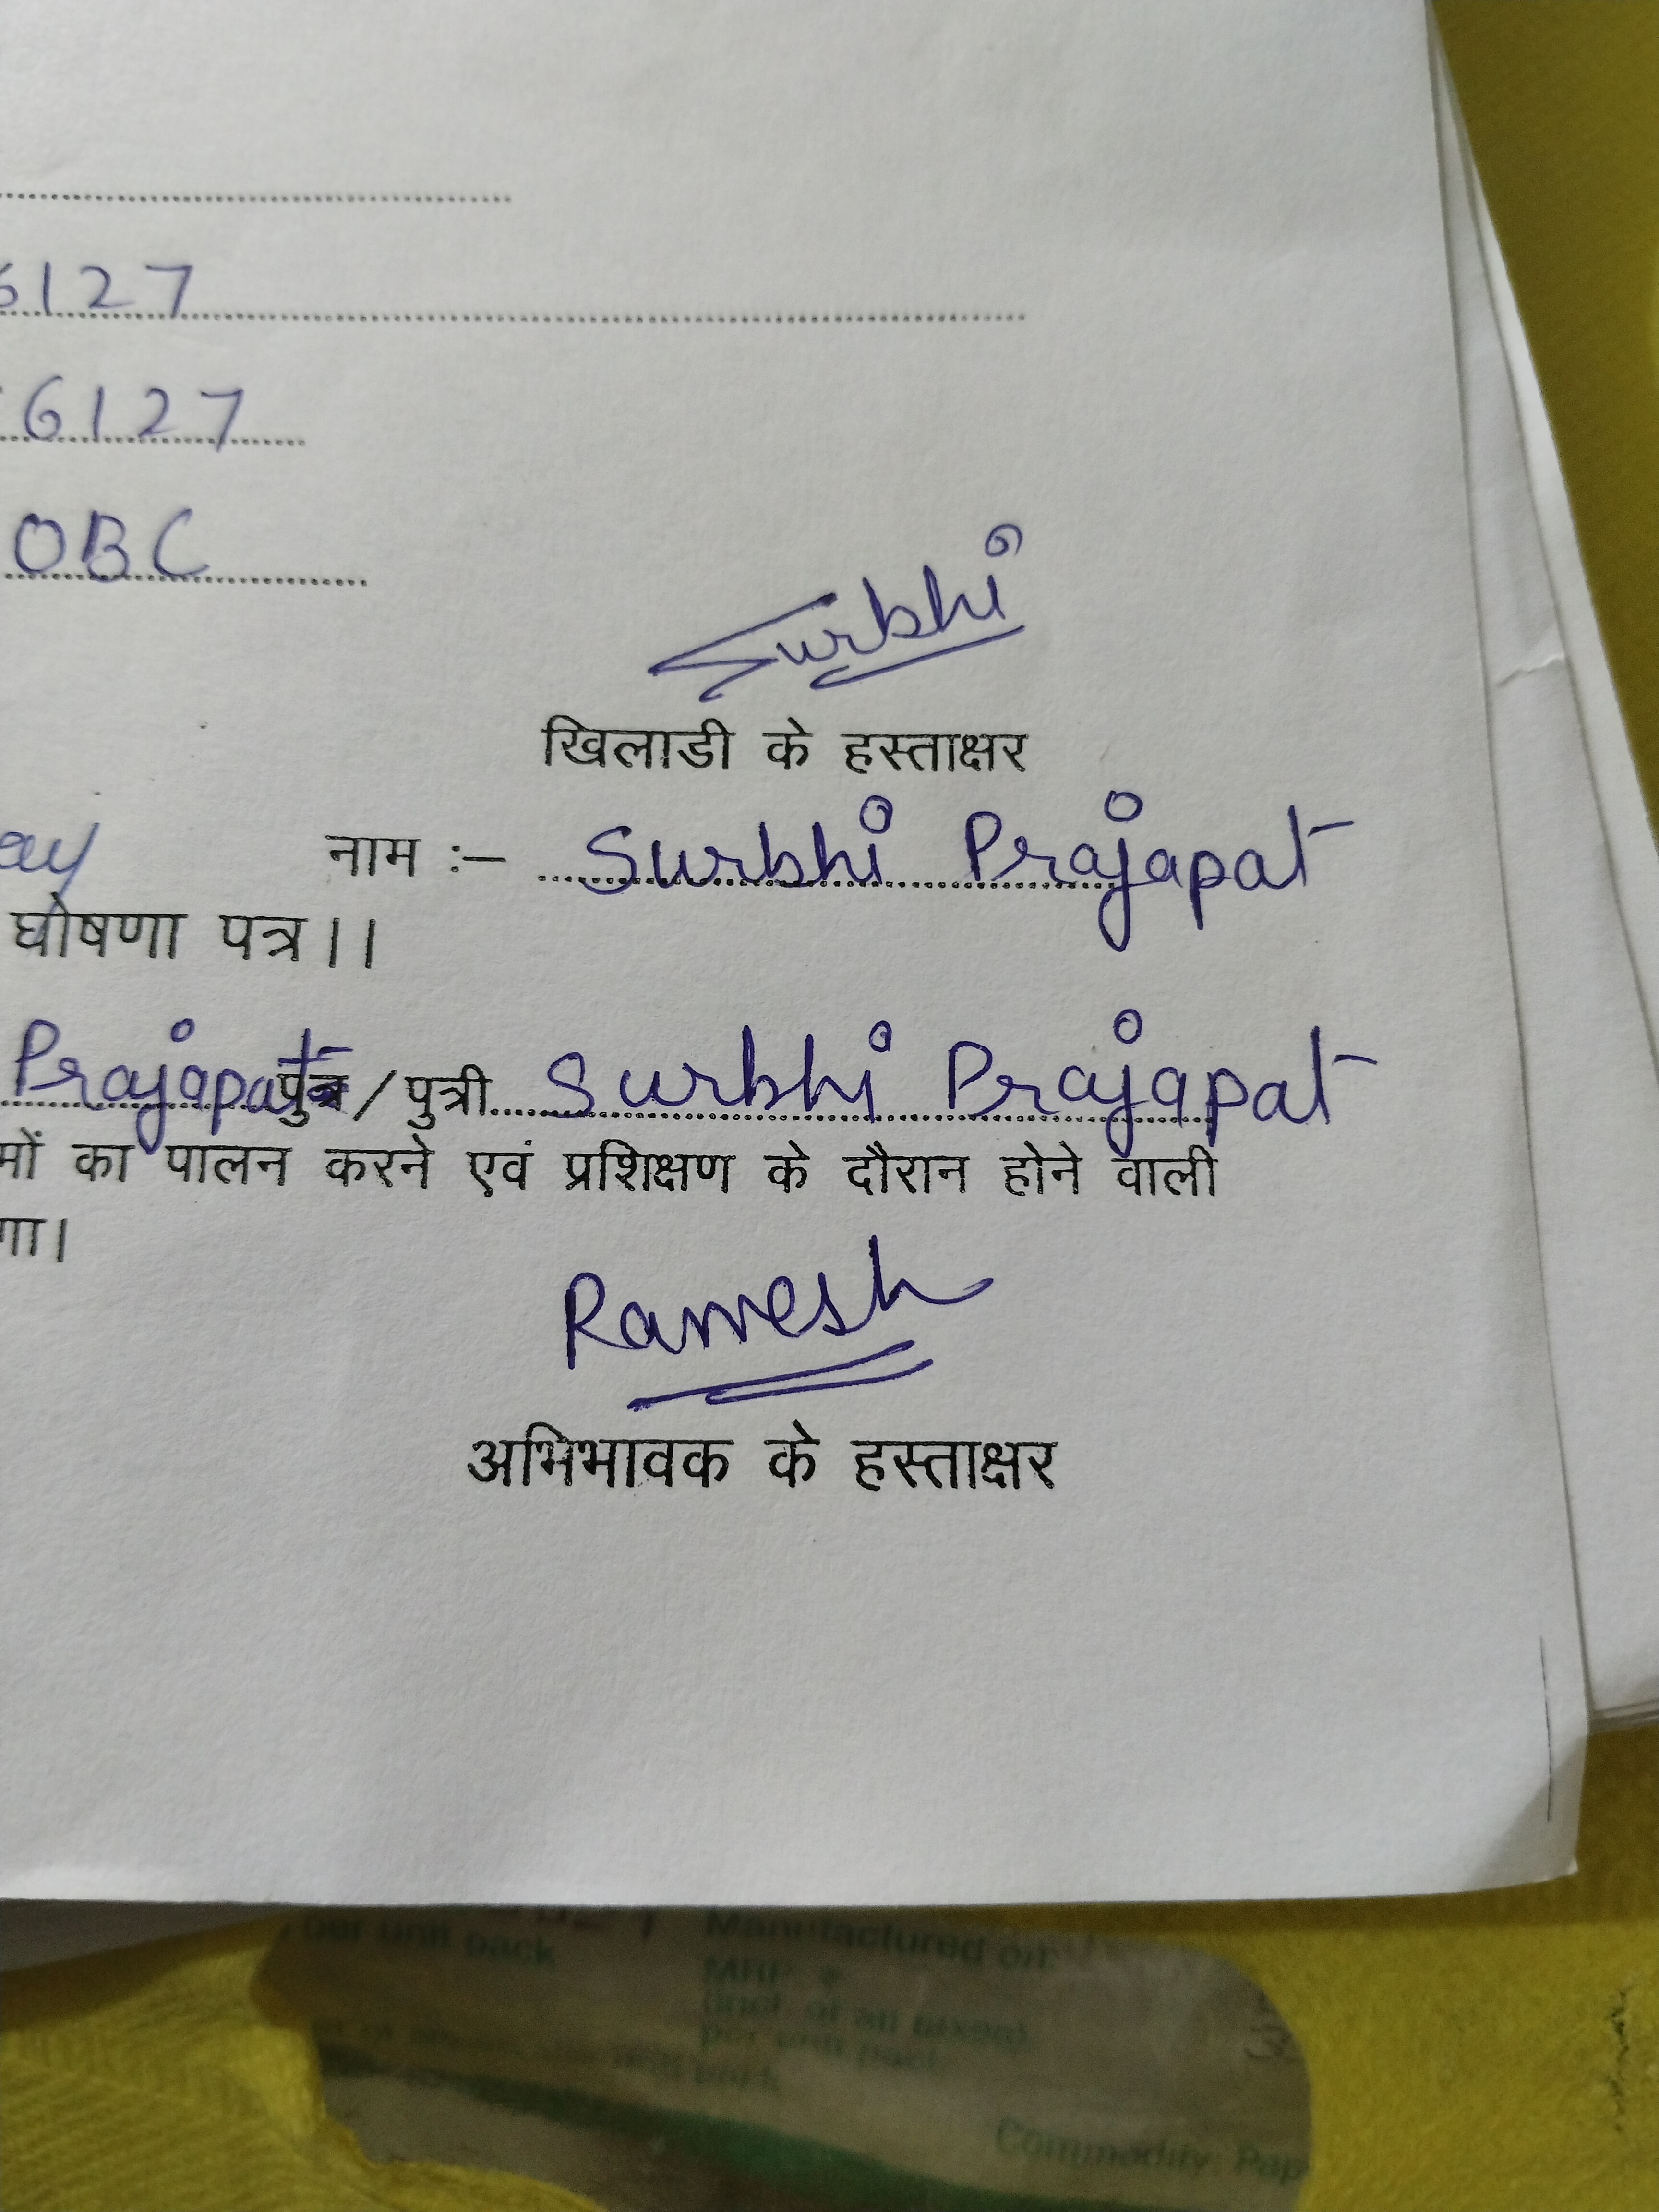 6127
6127
OBC
Surbhi
खिलाडी के हस्ताक्षर
नाम :– Surbhi Prajapat
घोषणा पत्र।।
Prajapat पुत्र / पुत्री Surbhi Prajapat
का पालन करने एवं प्रशिक्षण के दौरान होने वाली
Ramesh
अभिभावक के हस्ताक्षर
per unit pack Manufactured on:
MRP ₹
(incl. of all taxes)
per unit pack
Commodity: Pap